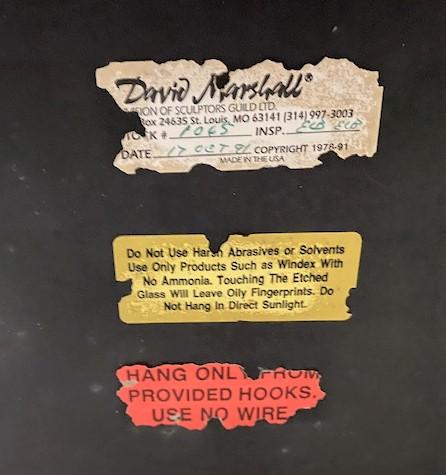 David Marshall®
ISION OF SCULPTORS GUILD LTD.
Box 24635 St. Louis, MO 63141 (314) 997-3003
STOCK # 1065 INSP. ELB ELB
DATE 17 OCT 91 COPYRIGHT 1978-91
MADE IN THE USA
Do Not Use Harsh Abrasives or Solvents
Use Only Products Such as Windex With
No Ammonia. Touching The Etched
Glass Will Leave Oily Fingerprints. Do
Not Hang In Direct Sunlight.
HANG ONLY FROM
PROVIDED HOOKS.
USE NO WIRE